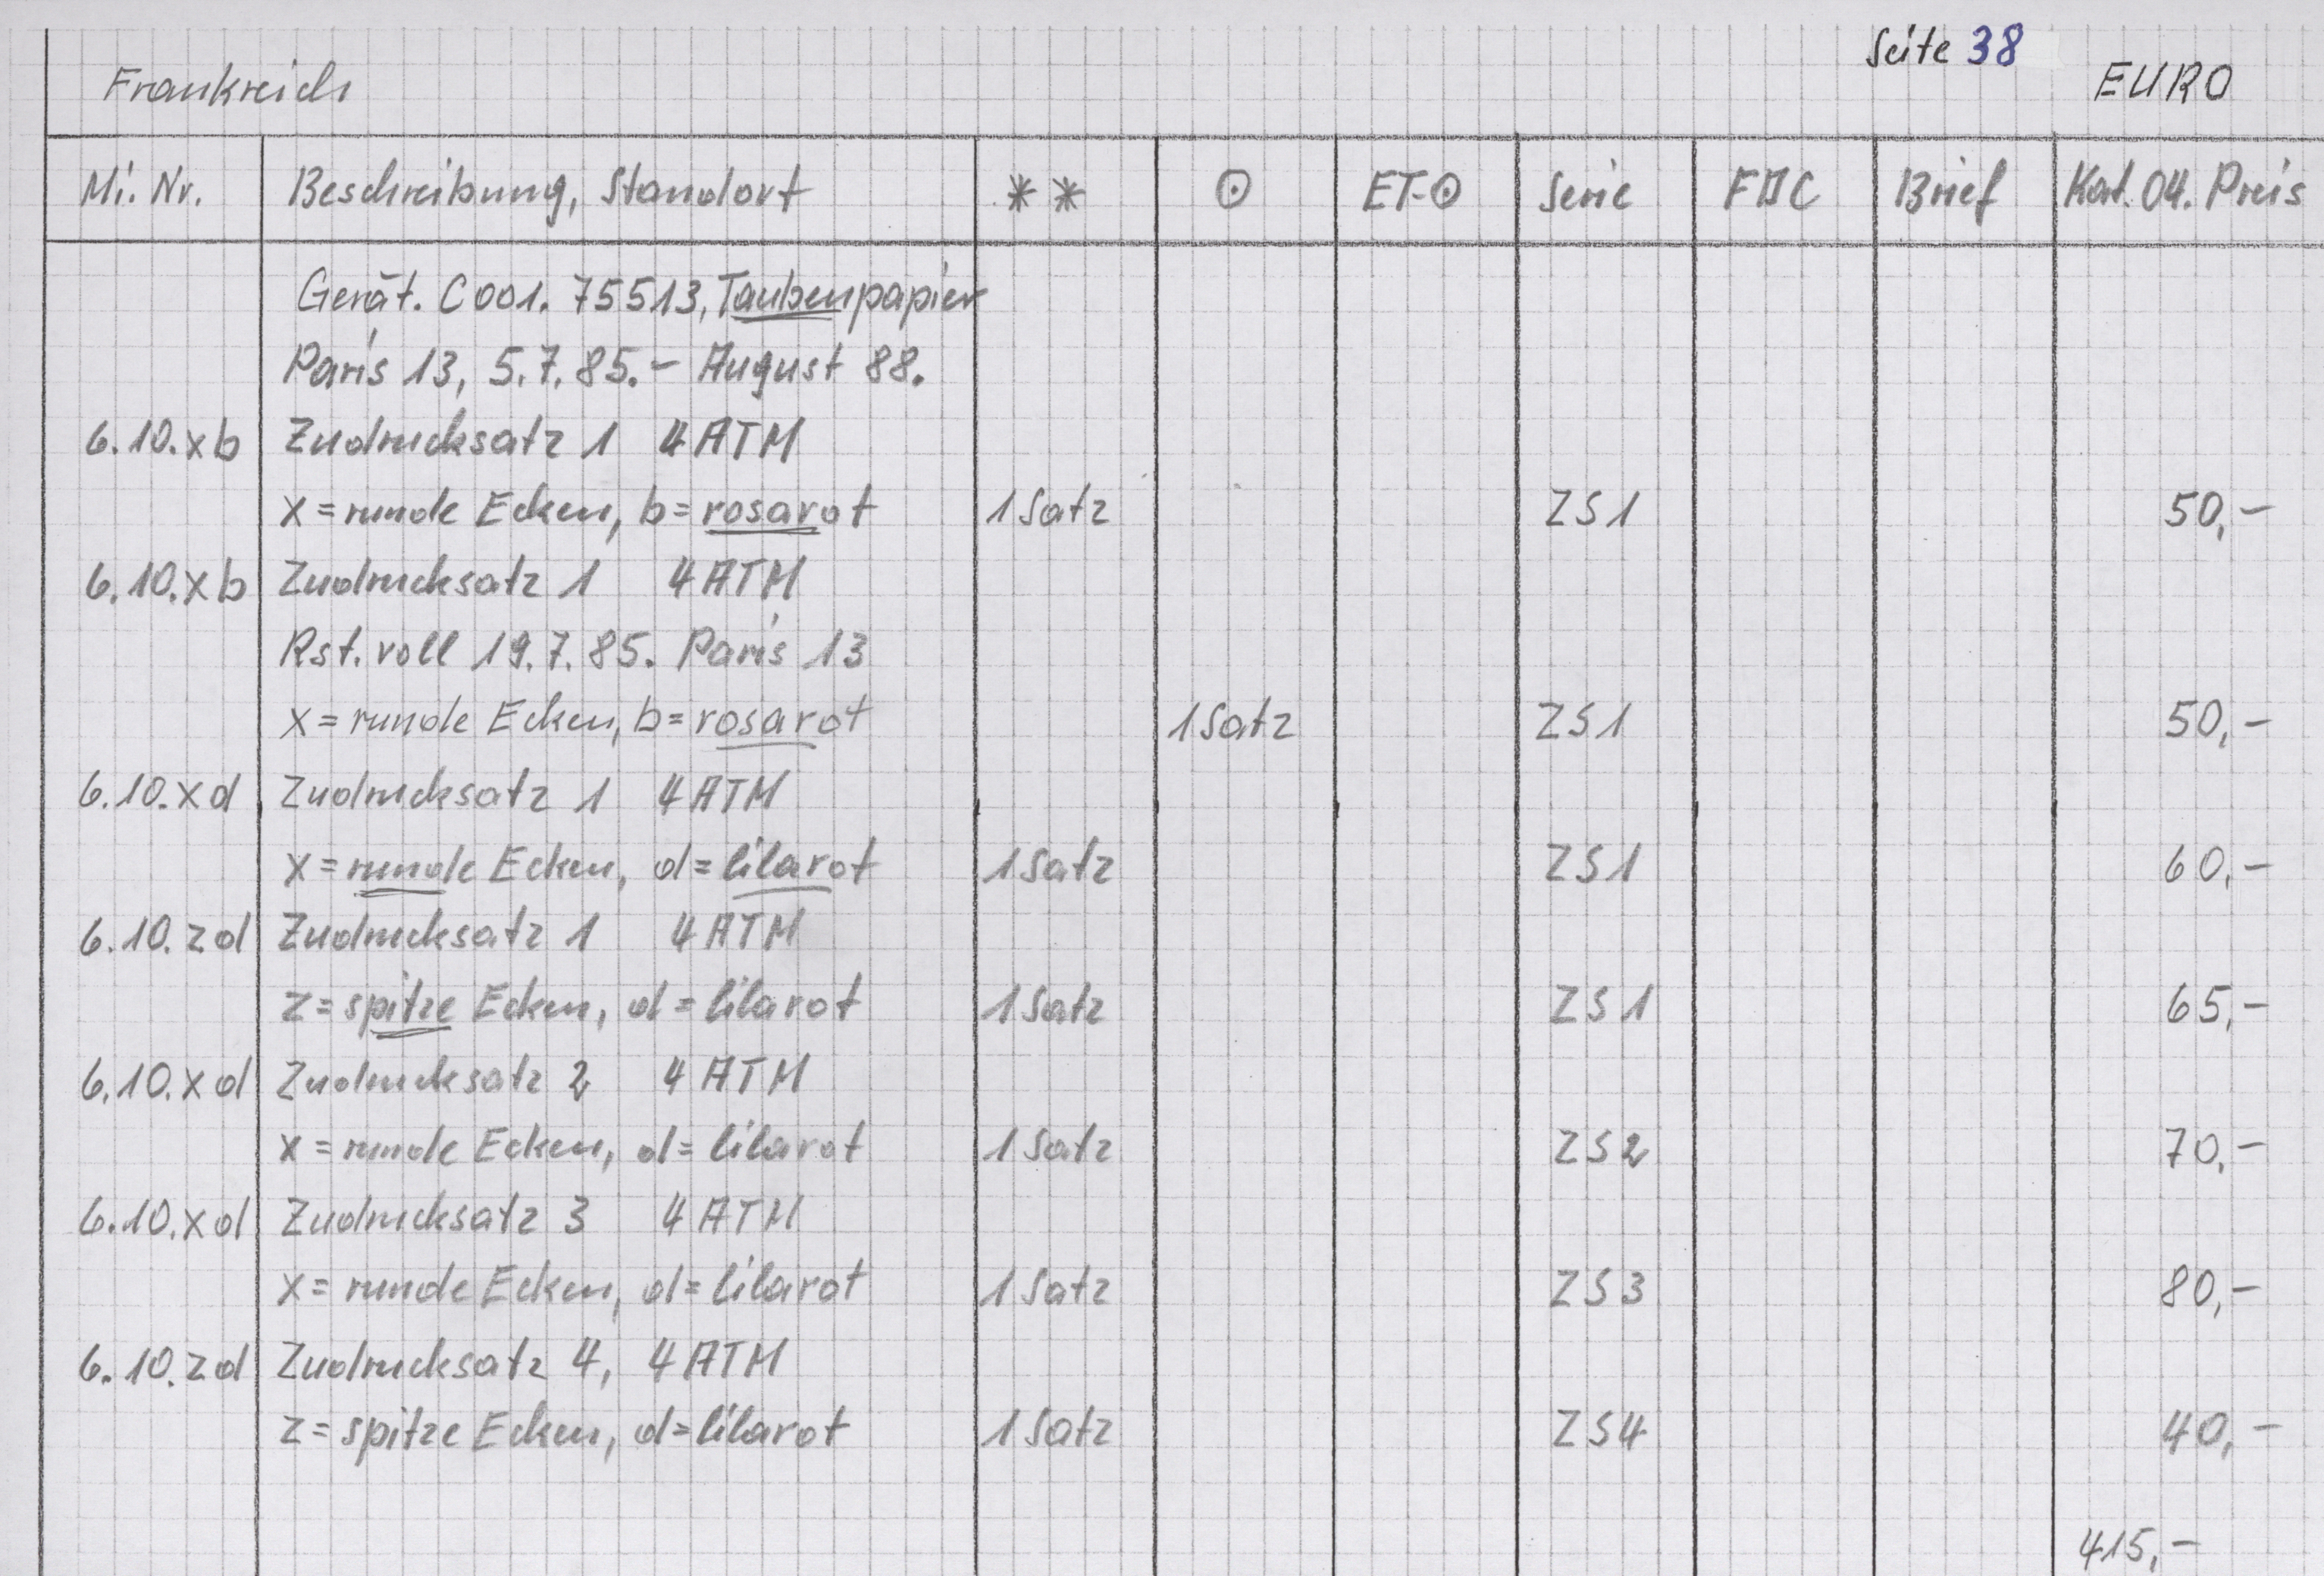 Seite 38
Frankreich EURO
Mi. Nr. Beschreibung, Standort ** ⊙ ET-⊙ Serie FDC Brief Kat. 04. Preis
Gerät. C001. 75513, Taubenpapier
Paris 13, 5.7.85.- August 88.
6.10.xb Zudrucksatz 1 4 ATM
x = runde Ecken, b = rosarot 1 Satz ZS1 50,-
6.10.xb Zudrucksatz 1 4 ATM
Rst. voll 19.7.85. Paris 13
x = runde Ecken, b = rosarot 1 Satz ZS1 50,-
6.10.xd Zudrucksatz 1 4 ATM
x = runde Ecken, d = lilarot 1 Satz ZS1 60,-
6.10.zd Zudrucksatz 1 4 ATM
z = spitze Ecken, d = lilarot 1 Satz ZS1 65,-
6.10.xd Zudrucksatz 2 4 ATM
x = runde Ecken, d = lilarot 1 Satz ZS2 70,-
6.10.xd Zudrucksatz 3 4 ATM
x = runde Ecken, d = lilarot 1 Satz ZS3 80,-
6.10.zd Zudrucksatz 4, 4 ATM
z = spitze Ecken, d = lilarot 1 Satz ZS4 40,-
415,-